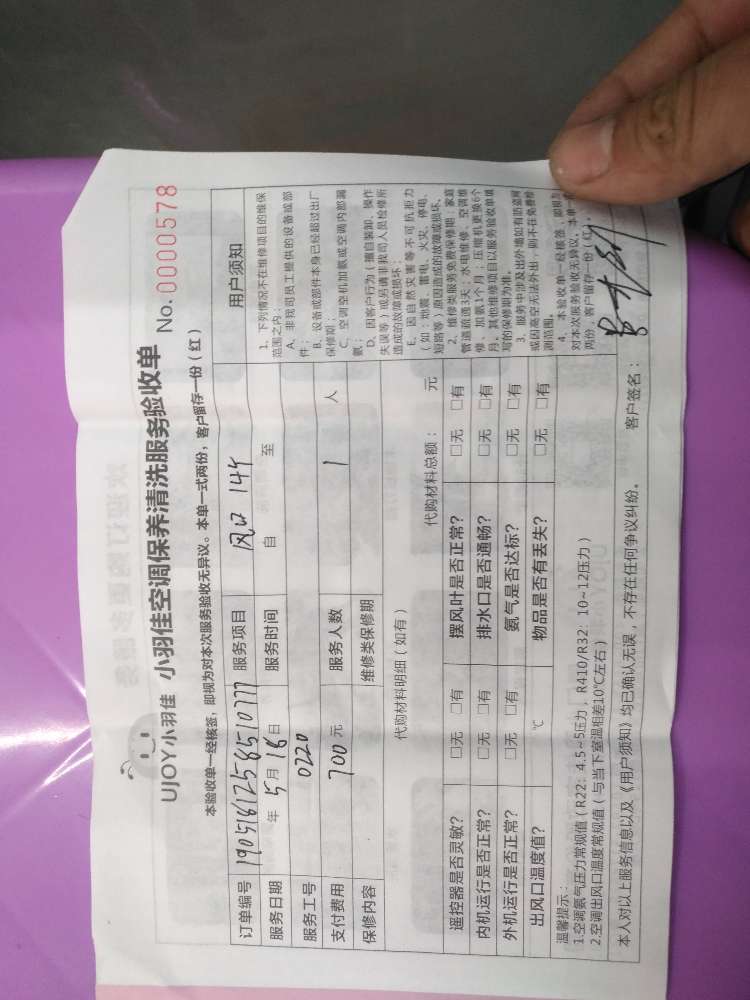 UJOY小羽佳 小羽佳空调保养清洗服务验收单 No. 0000578
本验收单一经核签，即视为对本次服务验收无异议。本单一式两份，客户留存一份（红）
订单编号 190516125851077 服务项目 风口 14个
服务日期 年 5 月 18 日 服务时间 自 至
服务工号 0220
支付费用 700 元 服务人数 1 人
保修内容 维修类保修期
代购材料明细（如有） 代购材料总额： 元
遥控器是否灵敏？ □无 □有 摆风叶是否正常？ □无 □有
内机运行是否正常？ □无 □有 排水口是否通畅？ □无 □有
外机运行是否正常？ □无 □有 氨气是否达标？ □无 □有
出风口温度值？ ℃ 物品是否有丢失？ □无 □有
用户须知
1、下列情况不在维修项目的维保
范围之内：
A、非我司员工提供的设备或部
件；
B、设备或部件本身已经超过出厂
保修期；
C、空调空机加氨或空调内部漏
氨；
D、因客户行为（擅自装卸、操作
失误等）或另请非我司人员检修所
造成的故障或损坏；
E、因自然灾害等不可抗拒力
（如：地震、雷电、火灾、停电、
短路等）原因造成的故障或损坏。
2、维修类服务免费保修期：家庭
管道疏通3天；水电维修、空调维
修、加氨1个月；压缩机更换6个
月。其他维修项目以服务验收单填
写的保修期为准。
3、服务中涉及出外墙如有防盗网
或因高空无法外出，则不在免费检
测范围。
4、本验收单一经核签，即视为
对本次服务验收无异议。本单一
两份，客户留存一份（红）。
温馨提示：
1.空调氨气压力常规值（R22：4.5~5压力，R410/R32：10~12压力）
2.空调出风口温度常规值（与当下室温相差10℃左右）
本人对以上服务信息以及《用户须知》均已确认无误，不存在任何争议纠纷。 客户签名：